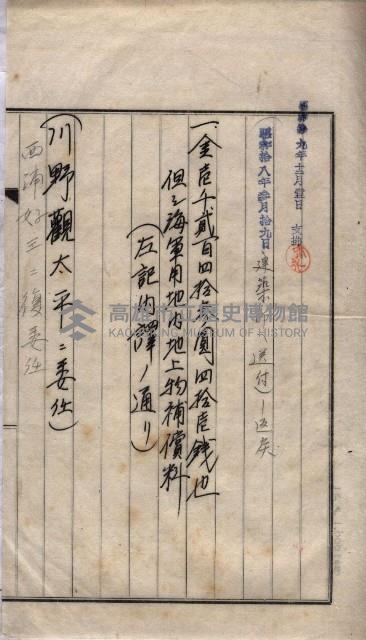 昭和拾九年十二月壹日 支拂
昭和拾八年参月拾九日 建築 送付 返戻
一、金壱千貳百四拾参圓四拾壱銭也
但シ海軍用地内地上物補償料
(左記内譯ノ通リ)
(川野觀太平ニ委任)
西浦好三ニ復委任
高雄市立歷史博物館
KAOHSIUNG MUSEUM OF HISTORY